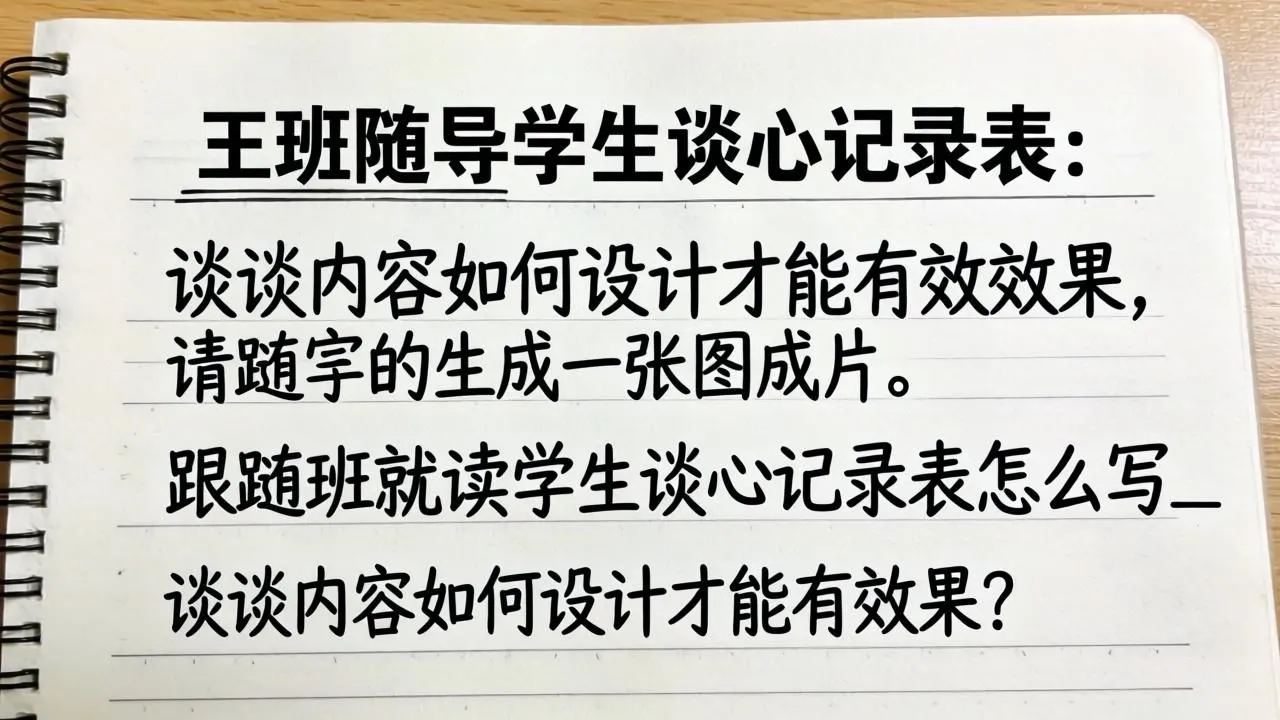 王班随导学生谈心记录表：
谈谈内容如何设计才能有效效果，
请的生成一张图成片。
跟班就读学生谈心记录表怎么写_
谈谈内容如何设计才能有效果？